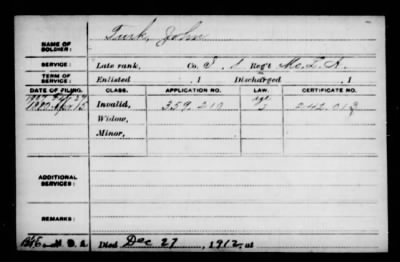 NAME OF SOLDIER: Turk, John
SERVICE: Late rank, Co. I, 1 Reg't Mo. L. A.
TERM OF SERVICE: Enlisted , 1 Discharged , 1
DATE OF FILING. CLASS. APPLICATION NO. LAW. CERTIFICATE NO.
1880 Apr 15 Invalid, 359.210 242.013
Widow,
Minor,
ADDITIONAL SERVICES:
REMARKS:
Died Dec 27, 1912, at